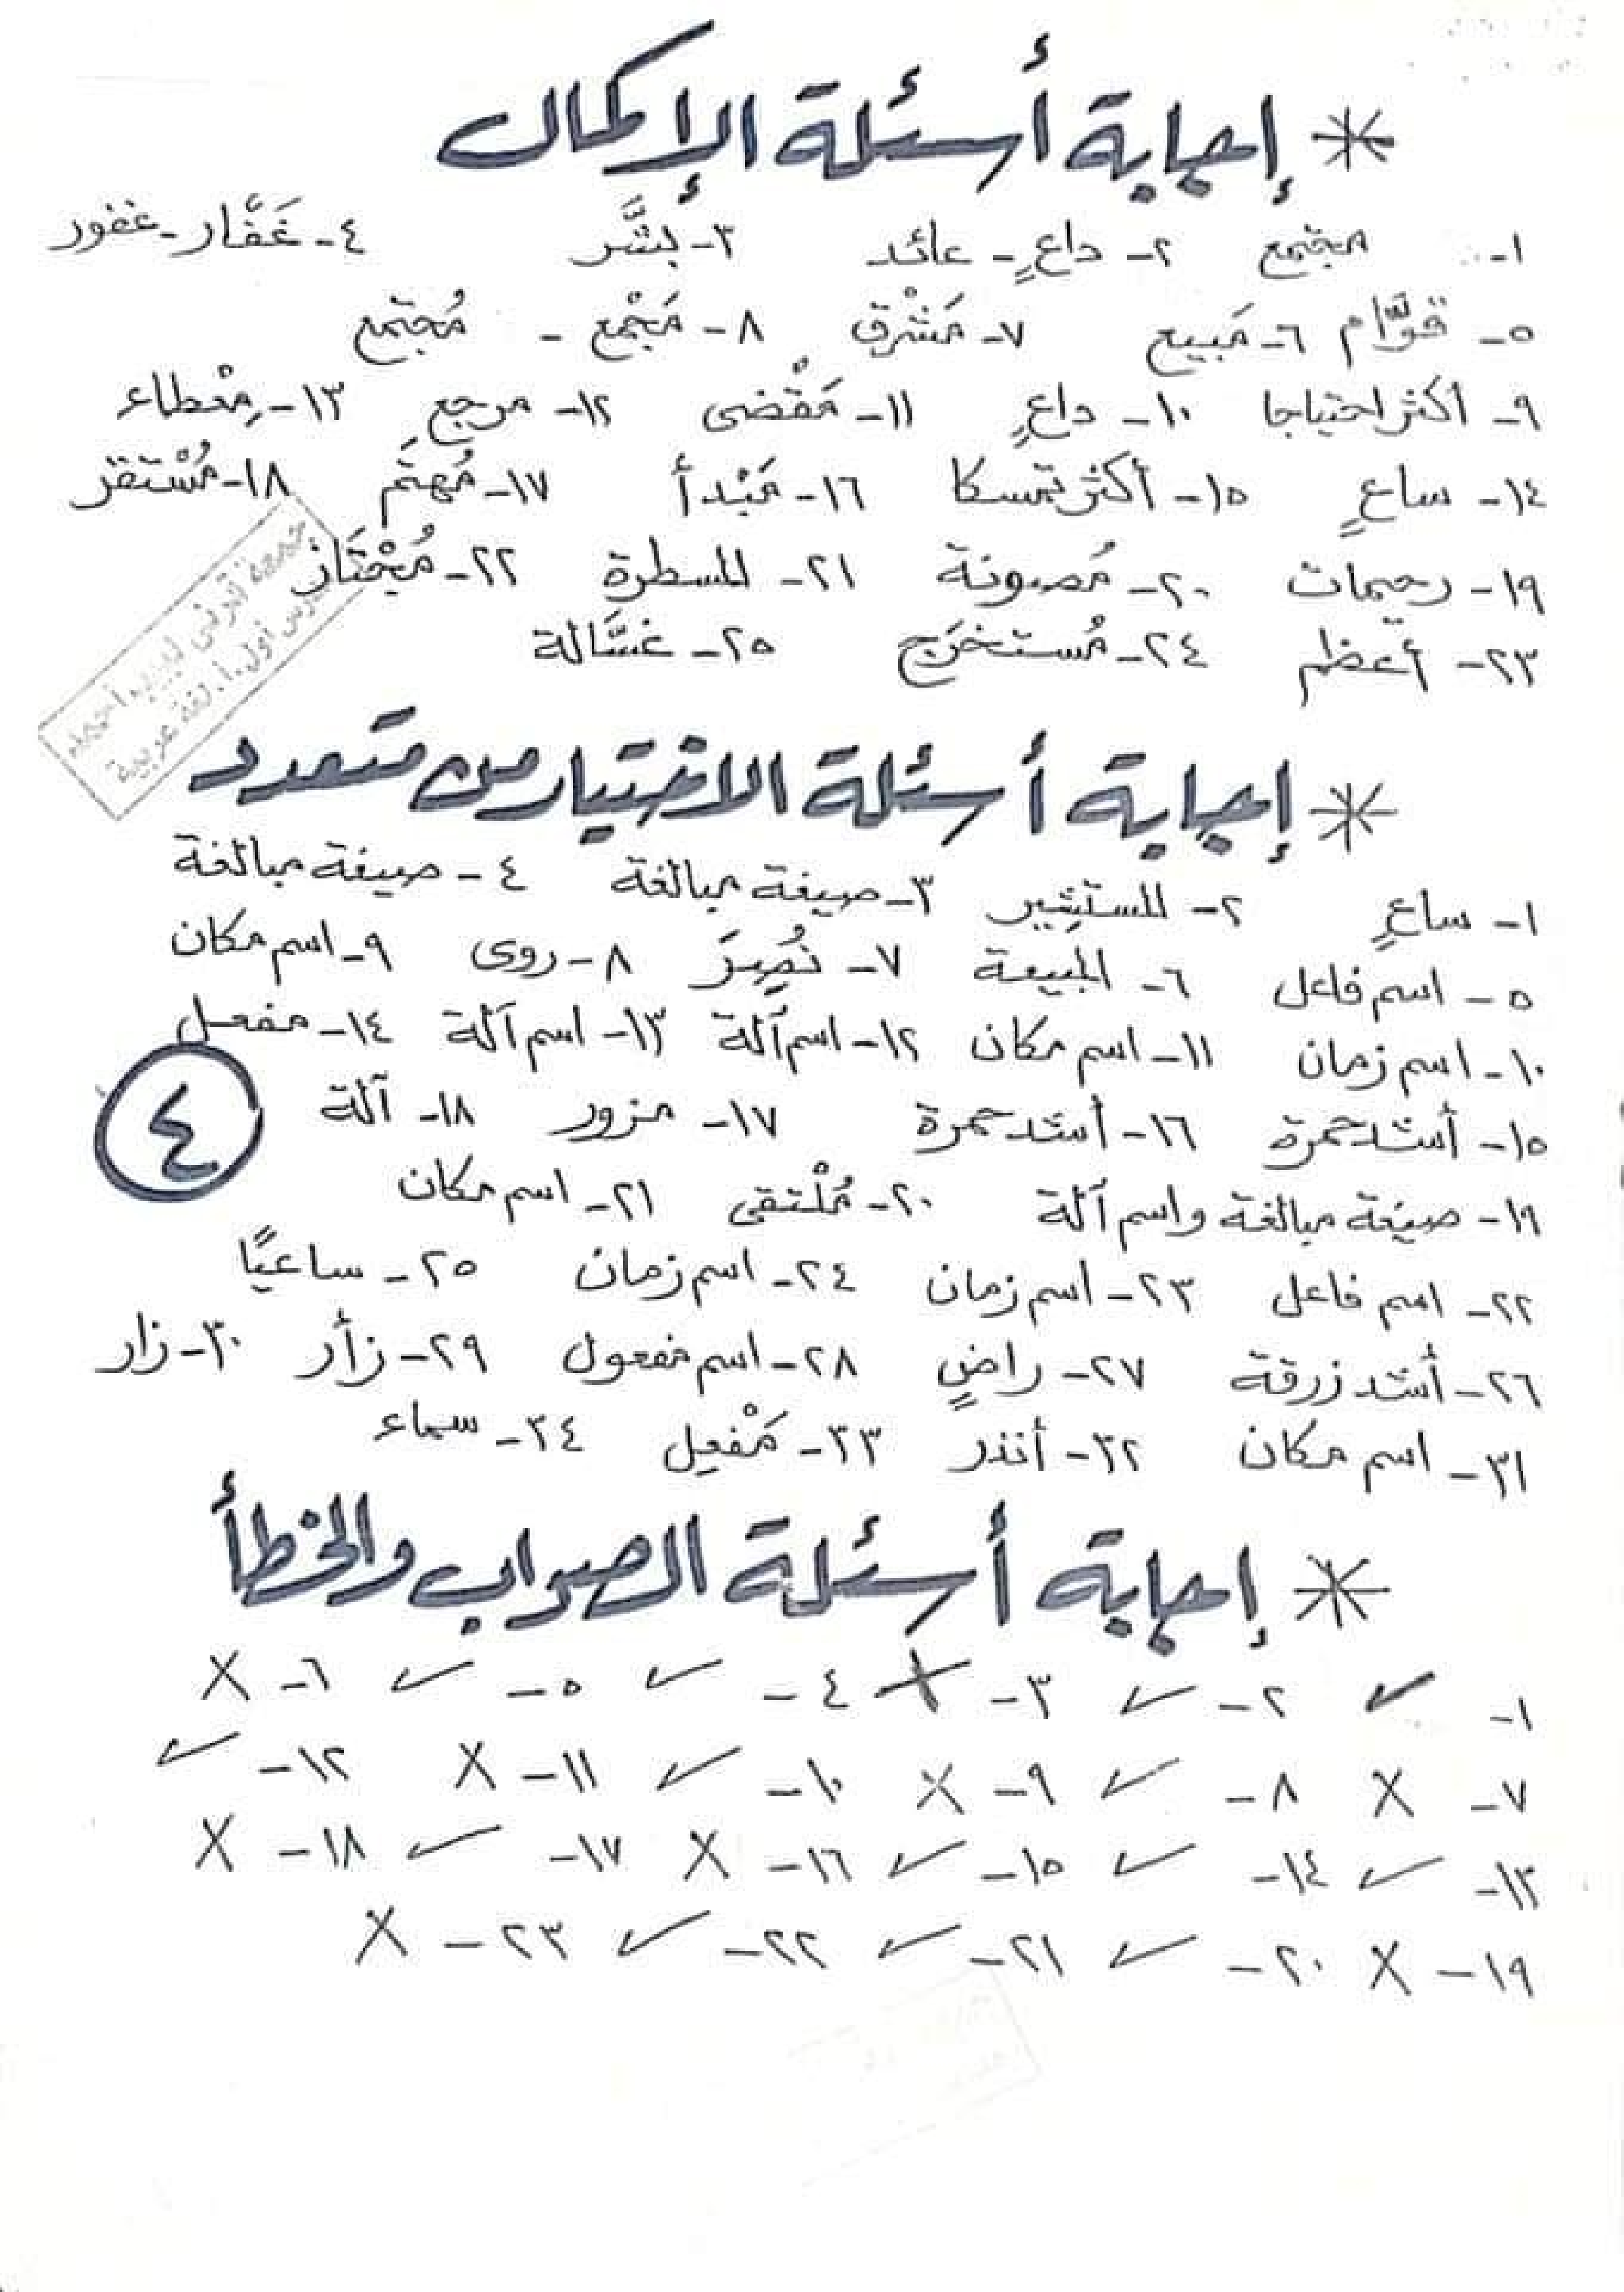 * إجابة أسئلة الإكمال
١- مجتمع ٢- داعٍ - عائد ٣- بشَّر ٤- غَفَّار - غفور
٥- قوَّام ٦- مَبيع ٧- مَشْرِق ٨- مَجْمع - مُجتمع
٩- أكثر احتياجا ١٠- داعٍ ١١- مَقْضى ١٢- مرجع ١٣- مِعْطاء
١٤- ساعٍ ١٥- أكثر تمسكا ١٦- مَبْدأ ١٧- مُهتَم ١٨- مُسْتقر
١٩- رحيمات ٢٠- مُصونة ٢١- المسطرة ٢٢- مُجْتَاز
٢٣- أعظم ٢٤- مُستخرَج ٢٥- غسَّالة
* إجابة أسئلة الاختيار من متعدد
١- ساعٍ ٢- المستشِير ٣- صيغة مبالغة ٤- صيغة مبالغة
٥- اسم فاعل ٦- المبيعة ٧- نُصِرَ ٨- روى ٩- اسم مكان
١٠- اسم زمان ١١- اسم مكان ١٢- اسم آلة ١٣- اسم آلة ١٤- مفعل
١٥- أشد حمرة ١٦- أشد حمرة ١٧- مزور ١٨- آلة
٤
١٩- صيغة مبالغة واسم آلة ٢٠- مُلْتقى ٢١- اسم مكان
٢٢- اسم فاعل ٢٣- اسم زمان ٢٤- اسم زمان ٢٥- ساعيًا
٢٦- أشد زرقة ٢٧- راضٍ ٢٨- اسم مفعول ٢٩- زأر ٣٠- زار
٣١- اسم مكان ٣٢- أنذر ٣٣- مَفْعِل ٣٤- سماء
* إجابة أسئلة الصواب والخطأ
١- ✓ ٢- ✓ ٣- X ٤- ✓ ٥- ✓ ٦- X
٧- X ٨- ✓ ٩- X ١٠- ✓ ١١- X ١٢- ✓
١٣- ✓ ١٤- ✓ ١٥- ✓ ١٦- X ١٧- ✓ ١٨- X
١٩- X ٢٠- ✓ ٢١- ✓ ٢٢- ✓ ٢٣- X